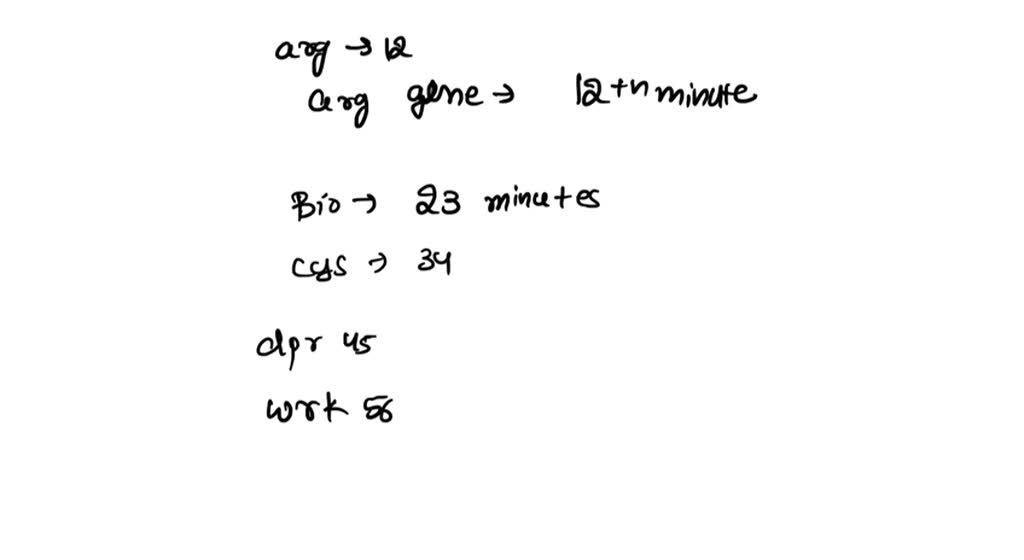 arg → 12
arg gene → 12 + n minute
Bio → 23 minutes
cys → 34
dpr 45
wrk 56